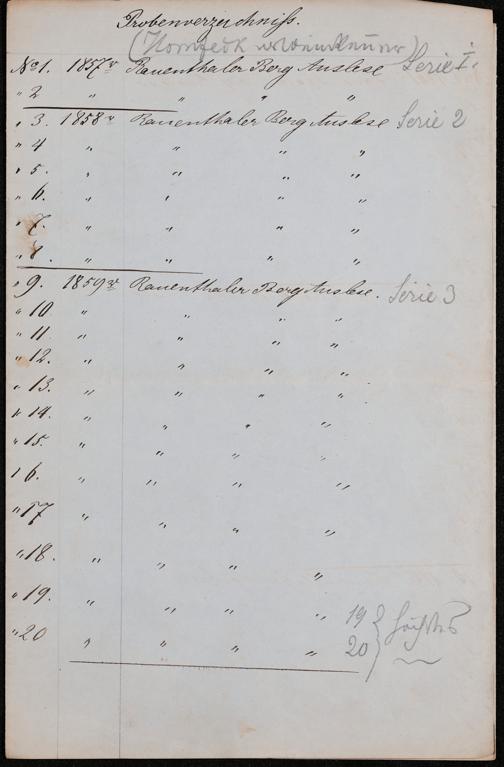 Probenverzeichniß.
No 1. 1857r Rauenthaler Berg Auslese Serie I.
" 2 " " " "
" 3. 1858r Rauenthaler Berg Auslese Serie 2
" 4 " " " "
" 5. " " " "
" 6. " " " "
" 7. " " " "
" 8. " " " "
" 9. 1859er Rauenthaler Berg Auslese. Serie 3
" 10 " " " "
" 11 " " " "
" 12. " " " "
" 13. " " " "
" 14. " " " "
" 15. " " " "
" 16. " " " "
" 17 " " " "
" 18. " " " "
" 19. " " " " 19
" 20 " " " " 20